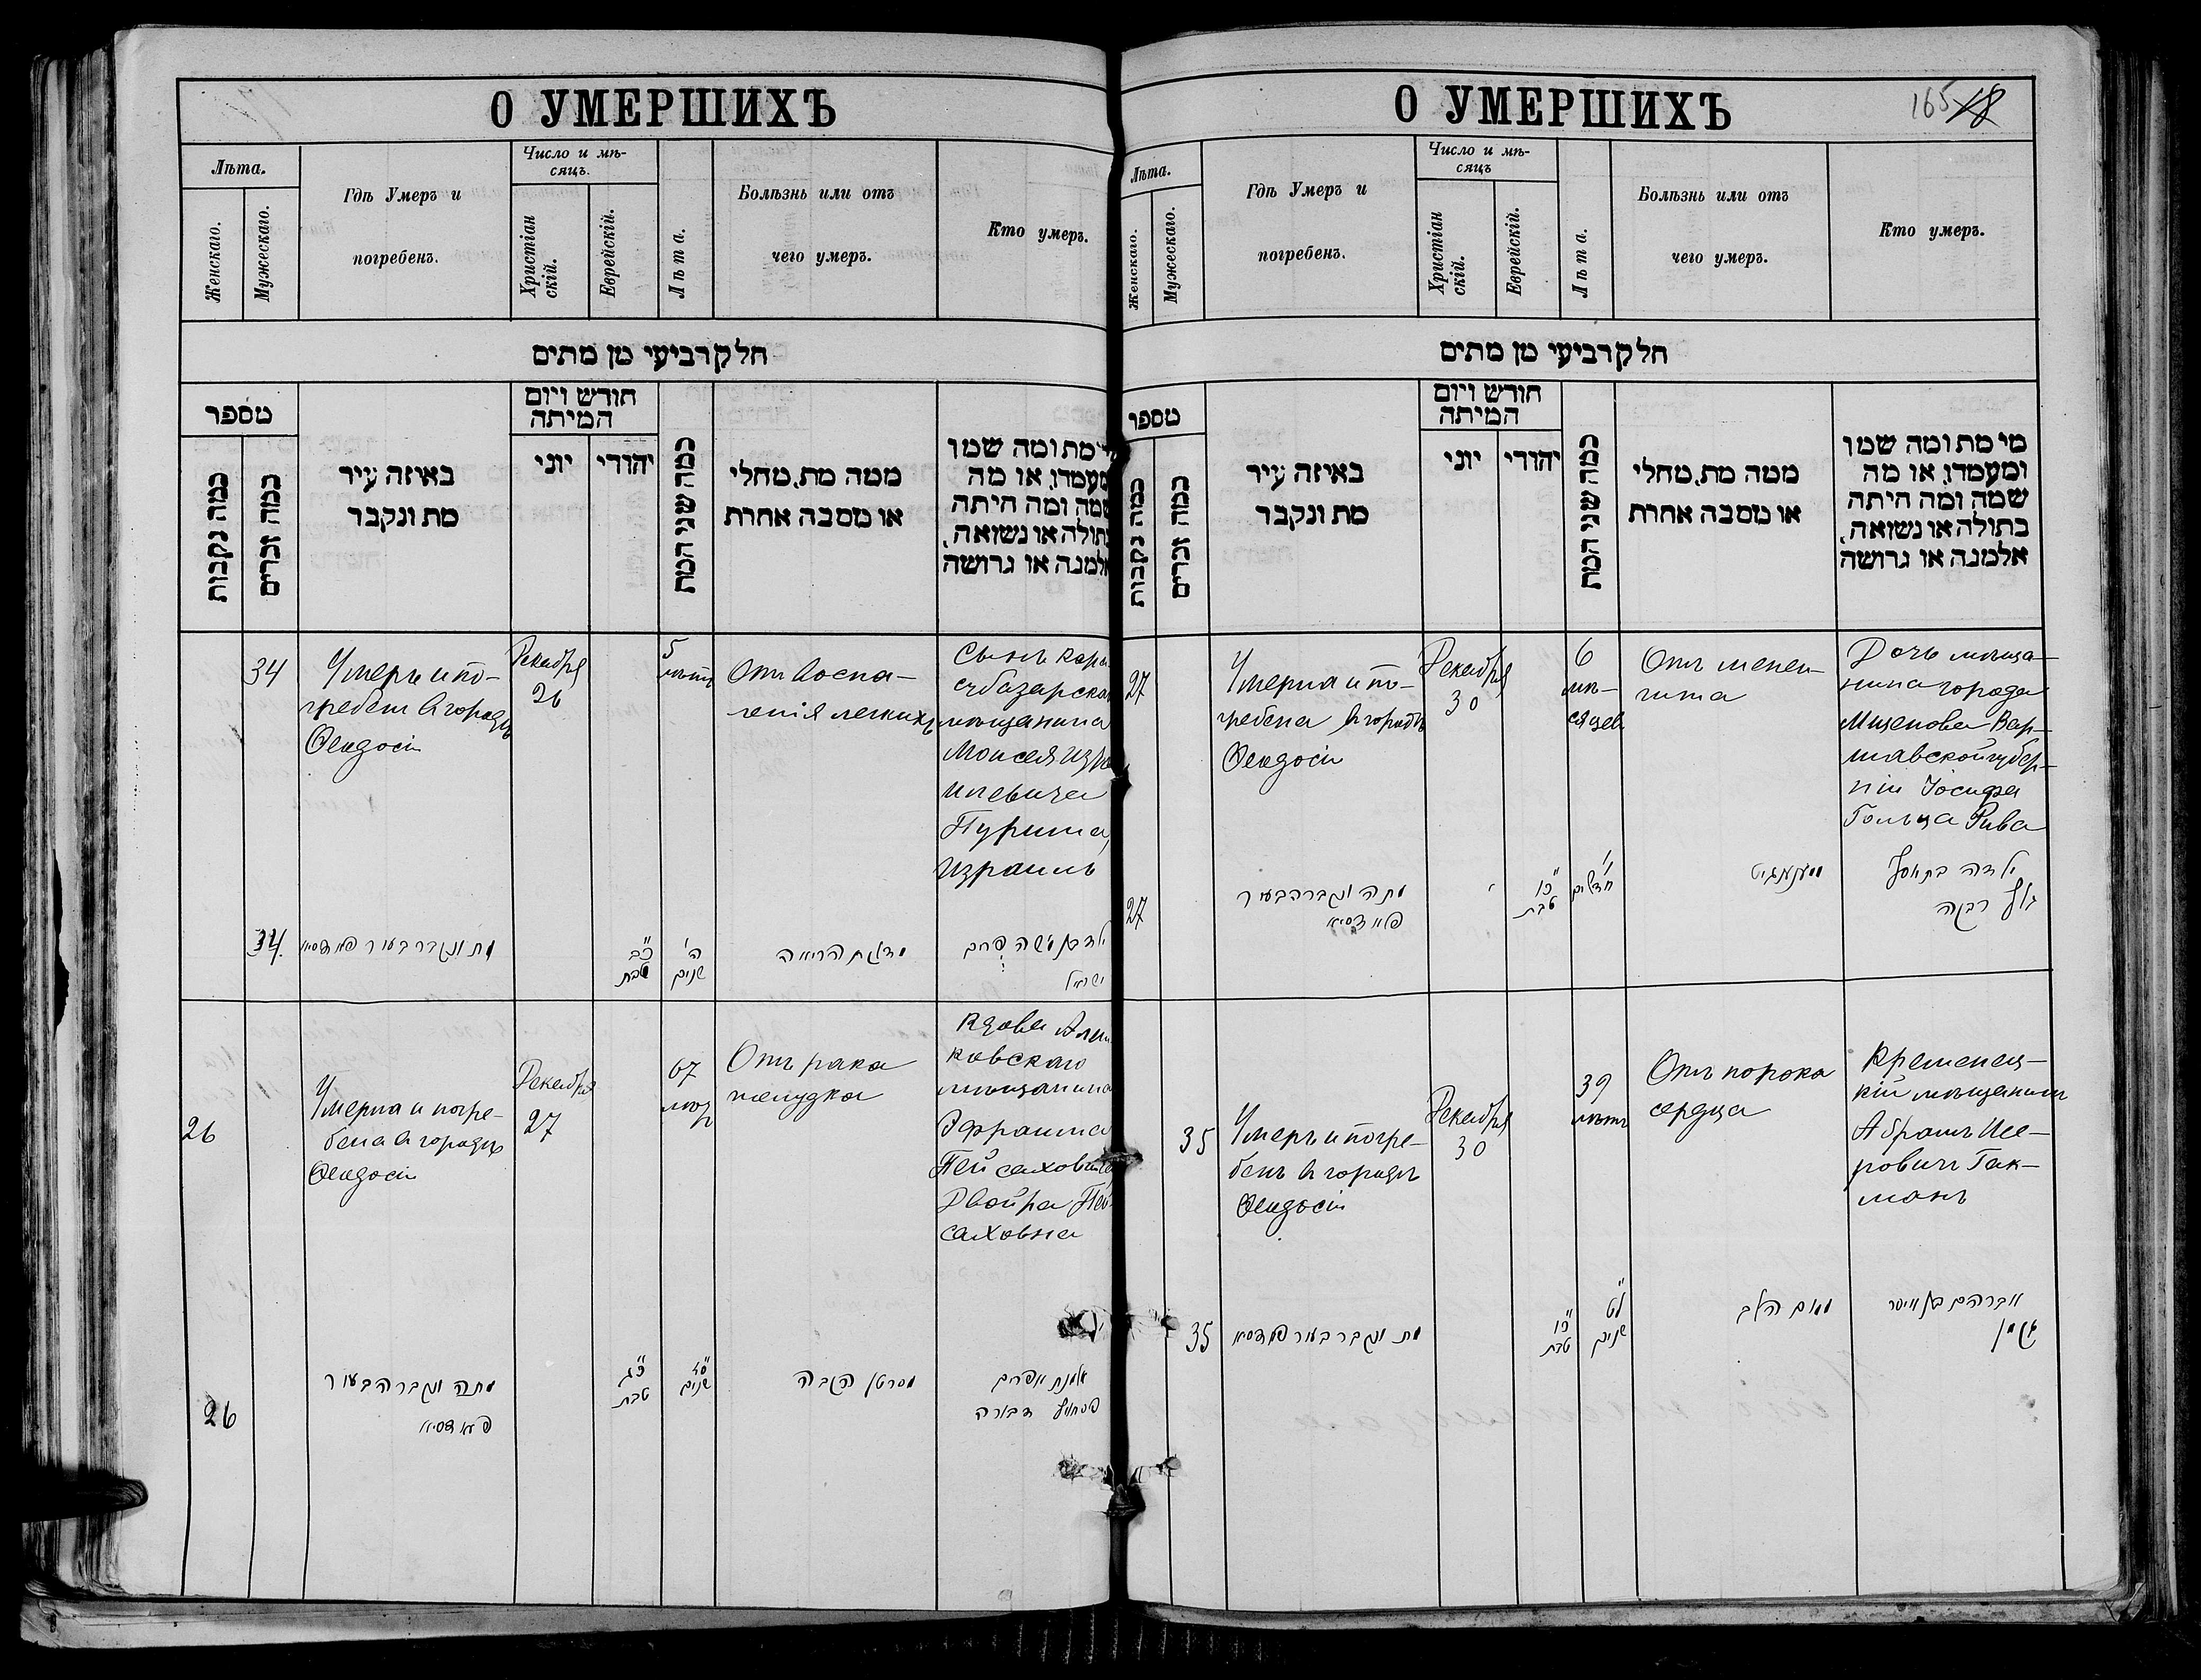 О УМЕРШИХЪ
Лѣта.
Женскаго.
Мужескаго.
Гдѣ Умеръ и
погребенъ.
Число и мѣ-
сяцъ.
Христіан
скій.
Еврейскій.
Лѣта.
Болѣзнь или отъ
чего умеръ.
Кто умеръ.
חלק רביעי מן מתים
מספר
כמה נקבות
כמה זכרים
באיזה עיר
מת ונקבר
חודש ויום
המיתה
יוני
יהודי
כמה שני המת
ממה מת, מחלי
או מסבה אחרת
מי מת ומה שמו
ומעמדו, או מה
שמה ומה היתה
בתולה או נשואה,
אלמנה או גרושה
34
Умеръ и по-
гребенъ въ городѣ
Ѳеодосіи
Декабря
26
5
лѣтъ
Отъ воспа-
ленія легкихъ
Сынъ Кара-
субазарска
мѣщанина
Моисея Изра
илевича
Пурима,
Израиль
34.
מת ונקבר בעיר פעאדסיא
כ״ב
טבת
ה׳
שנים
מדלקת הריאה
ילד בן משה פרים
ישראל
26
Умерла и погре-
бена въ городѣ
Ѳеодосіи
Декабря
27
67
лѣтъ
Отъ рака
желудка
Вдова Алеш
ковскаго
мѣщанина
Эфраима
Пейсаховича
Двойра Пей
саховна
26
מתה ונקברה בעיר
פעאדסיא
כ״ג
טבת
ס״ז
שנים
מסרטן הקבה
אלמנת אפרים
דבורה
О УМЕРШИХЪ
165 18
Лѣта.
Женскаго.
Мужескаго.
Гдѣ Умеръ и
погребенъ.
Число и мѣ-
сяцъ
Христіан
скій.
Еврейскій.
Лѣта.
Болѣзнь или отъ
чего умеръ.
Кто умеръ.
חלק רביעי מן מתים
מספר
כמה נקבות
כמה זכרים
באיזה עיר
מת ונקבר
חודש ויום
המיתה
יוני
יהודי
כמה שני המת
ממה מת, מחלי
או מסבה אחרת
מי מת ומה שמו
ומעמדו, או מה
שמה ומה היתה
בתולה או נשואה,
אלמנה או גרושה
27
Умерла и по-
гребена въ городѣ
Ѳеодосіи
Декабря
30
6
мѣ-
сяцевъ
Отъ менен-
гита
Дочь мѣща-
нина города
Мщенова Вар-
шавской губер-
ніи Іосифа
Гольца Рива
27
מתה ונקברה בעיר
פעאדסיא
כ״ו
טבת
ו׳
חדשים
מענענגיט
ילדה בת יוסף
גולץ רבקה
35
Умеръ и погре-
бенъ въ городѣ
Ѳеодосіи
Декабря
30
39
лѣтъ
Отъ порока
сердца
Кременец-
кій мѣщанинъ
Абрамъ Исе-
ровичъ Гак-
манъ
35
מת ונקבר בעיר פעאדסיא
כ״ו
טבת
ל״ט
שנים
ממום הלב
אברהם בן איסר
גקמן